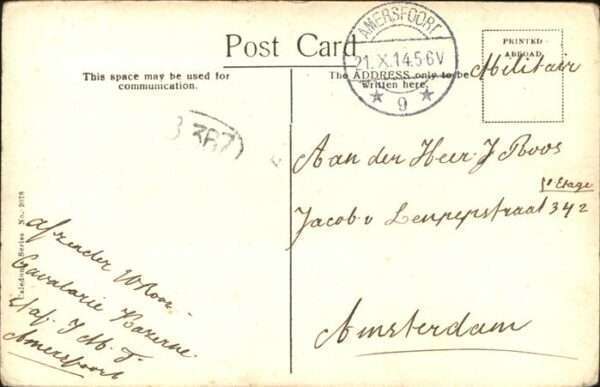 Post Card
This space may be used for
communication.
The ADDRESS only to be
written here.
PRINTED
ABROAD.
AMERSFOORT
21.X.14.5-6V
9
Militair
387
Aan der Heer J Roos
1e Etage
Jacob v Lennepstraat 342
Amsterdam
Caledonia Series No. 2078
afzender W Roos
Cavalarie Kazerne
Staf
Amersfoort